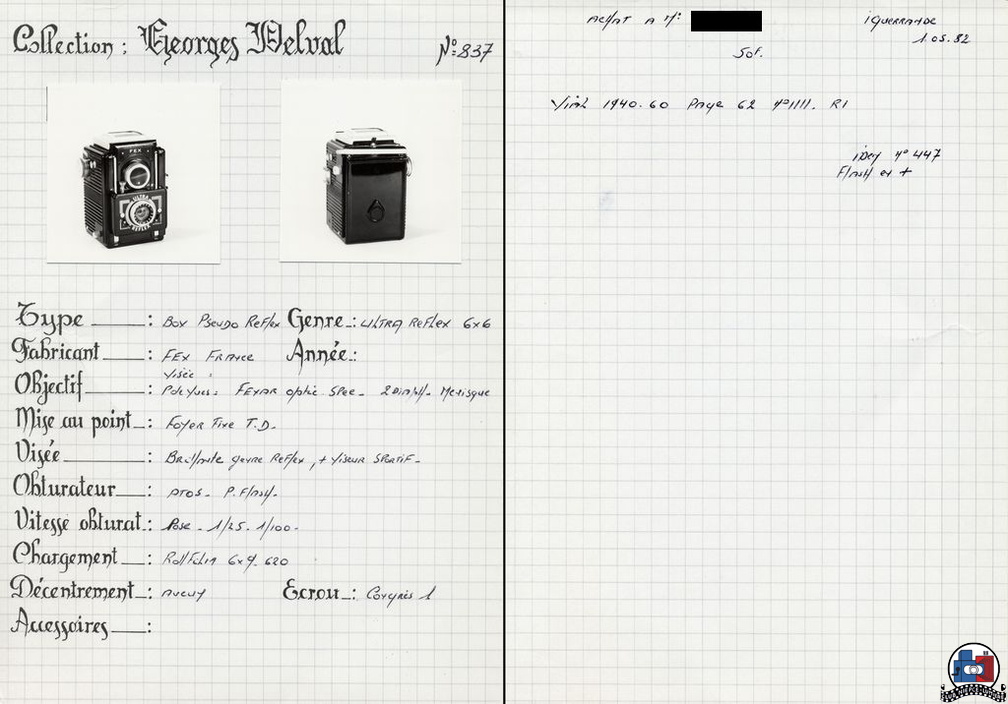 Collection : Georges Delval N°:837
FEX
ULTRA
REFLEX
Type : Box Pseudo Reflex Genre : ULTRA Reflex 6x6
Fabricant : FEX FRANCE Année :
Visée :
Objectif : Fexar optic Spec.
Mise au point : Foyer Fixe T.D.
Visée : Brillante genre Reflex, + Viseur SPORTIF.
Obturateur : ATOS. P. Flash.
Vitesse obturat. : Pose. 1/25. 1/100.
Chargement : Rollfilm 6x9. 620
Décentrement : Aucun Ecrou : Congrès 1
Accessoires :
Achat A Mr: iguerande
1.05.82
50F.
Vial 1940.60 Page 62 N°1111. R1
idem N° 447
Flash en +